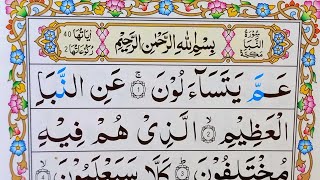 سُوْرَةُ النَّبَاِ مَكِّيَّةٌ
بِسْمِ اللهِ الرَّحْمٰنِ الرَّحِيْمِ
اٰيَاتُهَا 40 رُكُوْعَاتُهَا 2
عَمَّ يَتَسَآءَلُوْنَ ۝١ عَنِ النَّبَاِ
الْعَظِيْمِ ۝٢ الَّذِيْ هُمْ فِيْهِ
مُخْتَلِفُوْنَ ۝٣ كَلَّا سَيَعْلَمُوْنَ ۝٤